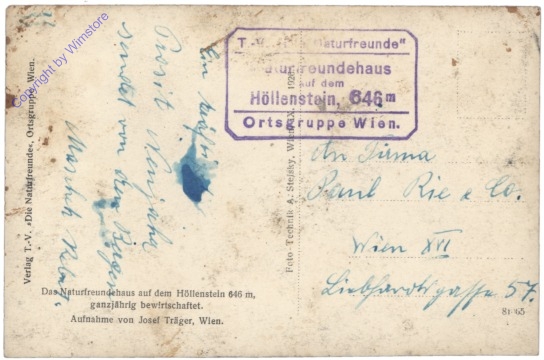 Copyright by Wimstore
Verlag T.-V. »Die Naturfreunde«, Ortsgruppe Wien.
Prosit Neujahr
sendet von den Bergen
Das Naturfreundehaus auf dem Höllenstein 646 m,
ganzjährig bewirtschaftet.
Aufnahme von Josef Träger, Wien.
Foto-Technik A. Stefsky, Wien
T.-V. Naturfreunde"
Naturfreundehaus
auf dem
Höllenstein, 646 m
Ortsgruppe Wien.
An Firma
Paul Rie & Co.
Wien XVI
Liebhardtsgasse 57.